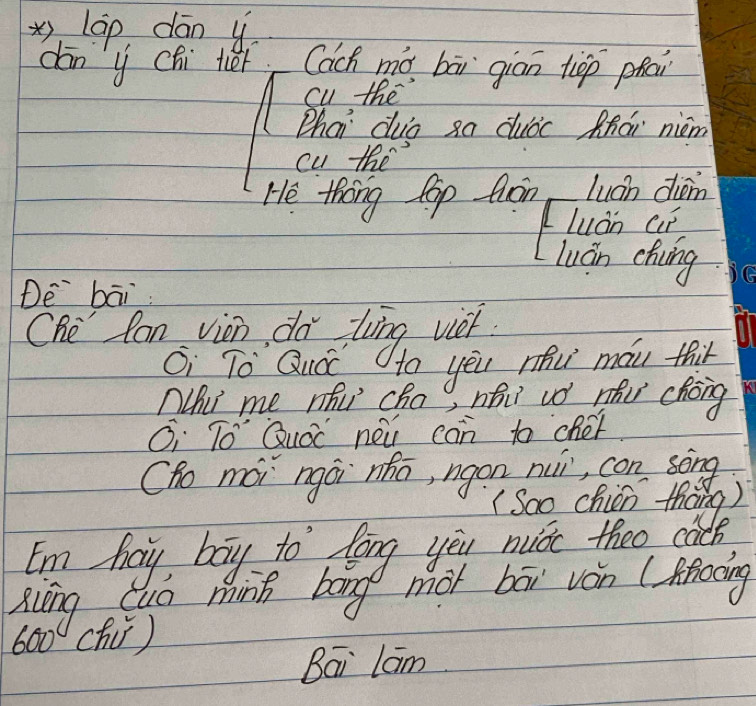 *) lập dàn ý
dàn ý chi tiết. Cách mở bài gián tiếp phải
cụ thể
Phải đưa ra được khái niệm
cụ thể
Hệ thống lập luận luận điểm
luận cứ
luận chứng
Đề bài:
Chế Lan Viên đã từng viết:
Ôi Tổ Quốc ta yêu như máu thịt
Như mẹ như cha, như vợ như chồng
Ôi Tổ Quốc nếu cần ta chết
Cho mỗi ngôi nhà, ngọn núi, con sông
(Sao chiến thắng)
Em hãy bày tỏ lòng yêu nước theo cách
riêng của mình bằng một bài văn (khoảng
600 chữ)
Bài làm